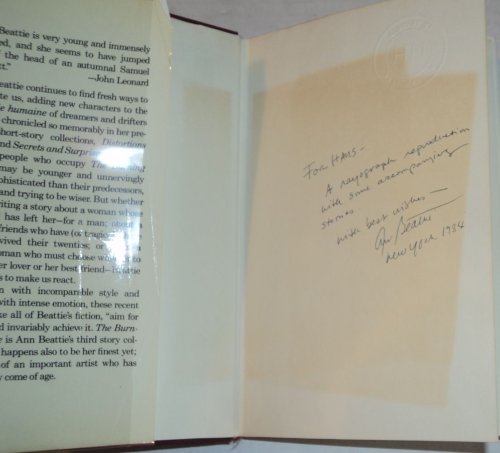 Beattie is very young and immensely
ed, and she seems to have jumped
f the head of an autumnal Samuel
tt."
—John Leonard
eattie continues to find fresh ways to
te us, adding new characters to the
ie humaine of dreamers and drifters
chronicled so memorably in her pre-
hort-story collections, Distortions
nd Secrets and Surpri
people who occupy The Burning
may be younger and unnervingly
phisticated than their predecessors,
and trying to be wiser. But whether
riting a story about a woman whose
has left her—for a man; about a
riends who have (or tragic
vived their twenties; or
oman who must choose
er lover or her best friend—Beattie
s to make us react.
n with incomparable style and
with intense emotion, these recent
ke all of Beattie's fiction, "aim for
d invariably achieve it. The Burn-
e is Ann Beattie's third story col-
happens also to be her finest yet;
of an important artist who has
y come of age.
For Hans—
A rayograph reproduction
with some accompanying
stories
with best wishes—
Ann Beattie
New York 1984